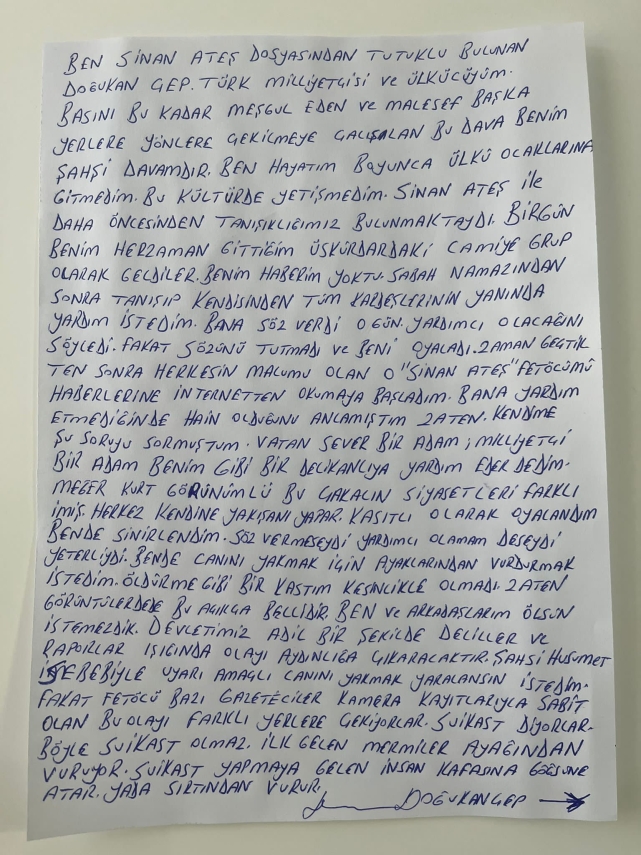 BEN SİNAN ATEŞ DOSYASINDAN TUTUKLU BULUNAN
DOĞUKAN ÇEP. TÜRK MİLLİYETÇİSİ ve ÜLKÜCÜYÜM.
BASINI BU KADAR MEŞGUL EDEN ve MALESEF BAŞKA
YERLERE YÖNLERE ÇEKİLMEYE ÇALIŞALAN BU DAVA BENİM
ŞAHSİ DAVAMDIR. BEN HAYATIM BOYUNCA ÜLKÜ OCAKLARINA
GİTMEDİM. BU KÜLTÜRDE YETİŞMEDİM. SİNAN ATEŞ ile
DAHA ÖNCESİNDEN TANIŞIKLIĞIMIZ BULUNMAKTAYDI. BİRGÜN
BENİM HERZAMAN GİTTİĞİM ÜSKÜRDARDAKİ CAMİYE GRUP
OLARAK GELDİLER. BENİM HABERİM YOKTU. SABAH NAMAZINDAN
SONRA TANIŞIP KENDİSİNDEN TÜM KARDEŞLERİNİN YANINDA
YARDIM İSTEDİM. BANA SÖZ VERDİ O GÜN. YARDIMCI OLACAĞINI
SÖYLEDİ. FAKAT SÖZÜNÜ TUTMADI ve BENİ OYALADI. ZAMAN GEÇTİK
TEN SONRA HERKESİN MALUMU OLAN O "SİNAN ATEŞ" FETÖCÜMÜ
HABERLERİNE İNTERNETTEN OKUMAYA BAŞLADIM. BANA YARDIM
ETMEDİĞİNDE HAİN OLDUĞUNU ANLAMIŞTIM ZATEN. KENDİME
ŞU SORUYU SORMUŞTUM. VATAN SEVER BİR ADAM ; MİLLİYETÇİ
BİR ADAM BENİM GİBİ BİR DELİKANLIYA YARDIM EDER DEDİM.
MEĞER KURT GÖRÜNÜMLÜ BU ÇAKALIN SİYASETLERİ FARKLI
İMİŞ. HERKEZ KENDİNE YAKIŞANI YAPAR. KASITLI OLARAK OYALANDIM
BENDE SİNİRLENDİM. SÖZ VERMESEYDİ YARDIMCI OLAMAM DESEYDİ
YETERLİYDİ. BENDE CANINI YAKMAK İÇİN AYAKLARINDAN VURDURMAK
İSTEDİM. ÖLDÜRME GİBİ BİR KASTIM KESİNLİKLE OLMADI. ZATEN
GÖRÜNTÜLERDEDE BU AÇIKÇA BELLİDİR. BEN ve ARKADAŞLARIM ÖLSÜN
İSTEMEZDİK. DEVLETİMİZ ADİL BİR ŞEKİLDE DELİLLER ve
RAPORLAR IŞIĞINDA OLAYI AYDINLIĞA ÇIKARACAKTIR. ŞAHSİ HUSUMET
SEBEBİYLE UYARI AMAÇLI CANINI YAKMAK YARALANSIN İSTEDİM.
FAKAT FETÖCÜ BAZI GAZETECİLER KAMERA KAYITLARIYLA SABİT
OLAN BU OLAYI FARKLI YERLERE ÇEKİYORLAR. SUİKAST DİYORLAR.
BÖYLE SUİKAST OLMAZ. İLK GELEN MERMİLER AYAĞINDAN
VURUYOR. SUİKAST YAPMAYA GELEN İNSAN KAFASINA GÖĞSÜNE
ATAR. YADA SIRTINDAN VURUR.
DOĞUKAN ÇEP →